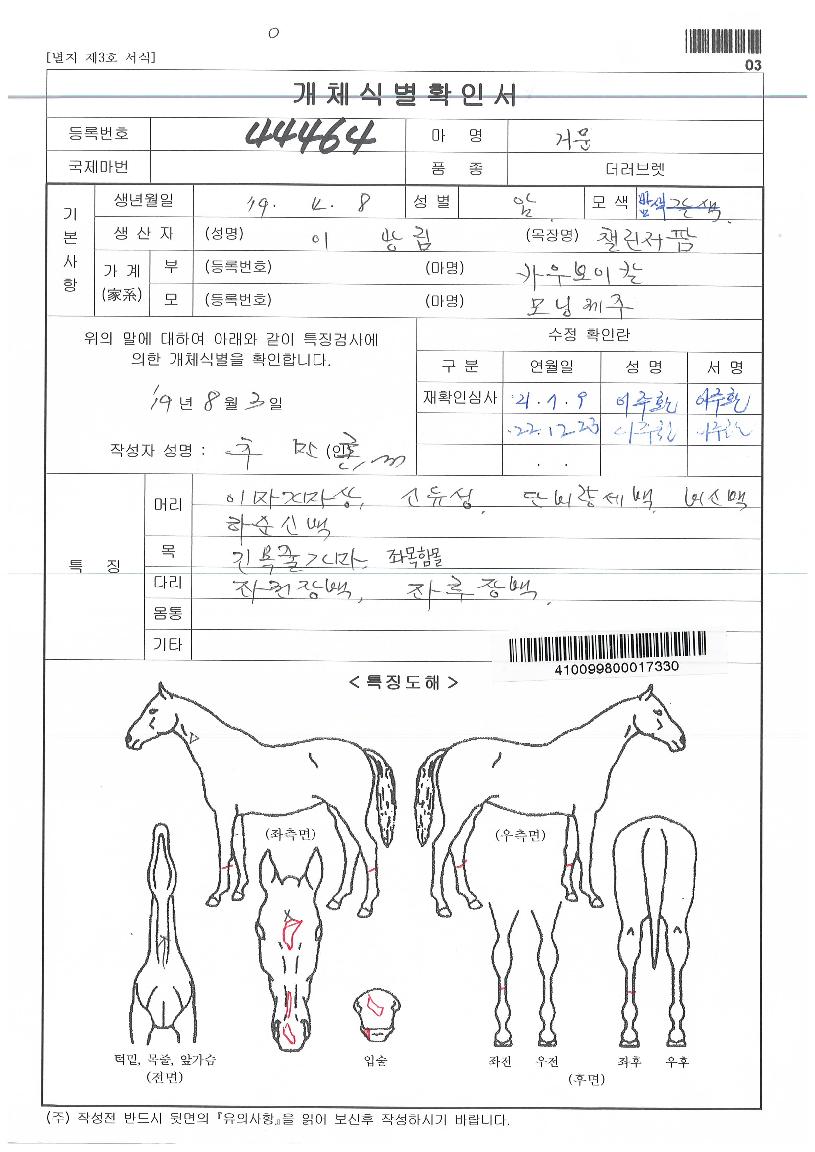 [별지 제3호 서식]
03
개체식별확인서
등록번호 44464 마 명 거문
국제마번 품 종 더러브렛
기본사항
생년월일 '19. 4. 8 성 별 암 모 색 밤색 갈색
생 산 자 (성명) 이 광림 (목장명) 챌린저팜
가 계 (家系) 부 (등록번호) (마명) 카우보이칼
모 (등록번호) (마명) 모닝제주
위의 말에 대하여 아래와 같이 특징검사에
의한 개체식별을 확인합니다.
'19 년 8 월 3 일
작성자 성명 : (인)
수정 확인란
구 분 연월일 성 명 서 명
재확인심사 21. 7. 9 이주환 이주환
22. 12. 23 이주환 이주환
. .
특 징
머리 이마지마상, 신유성, 단비량세백, 비신백
하순신백
목 긴목줄기마, 좌목함몰
다리 좌전장백, 좌후장백
몸통
기타
410099800017330
< 특징도해 >
(좌측면) (우측면)
턱밑, 목줄, 앞가슴
(전면)
입술
좌전 우전 좌후 우후
(후면)
(주) 작성전 반드시 뒷면의 『유의사항』을 읽어 보신후 작성하시기 바랍니다.